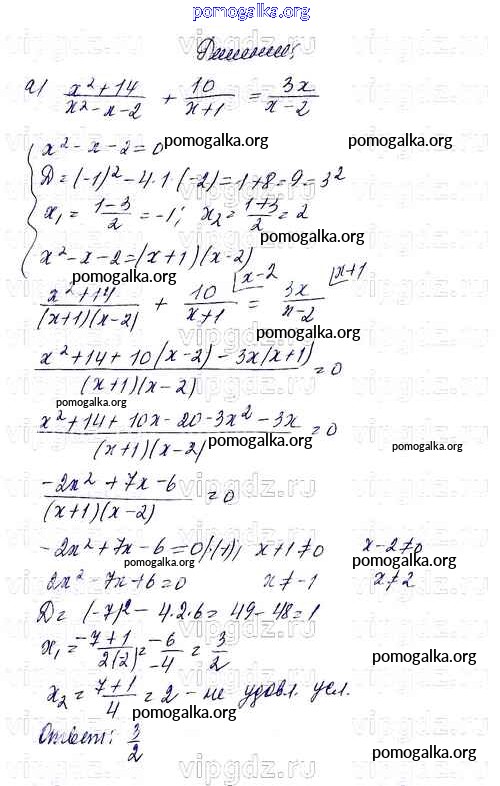 pomogalka.org
Решение:
а) (x²+14)/(x²-x-2) + 10/(x+1) = 3x/(x-2)
pomogalka.org pomogalka.org
x²-x-2=0
D=(-1)²-4·1·(-2)=1+8=9=3²
x₁=(1-3)/2=-1; x₂=(1+3)/2=2
pomogalka.org
x²-x-2=(x+1)(x-2)
pomogalka.org
(x²+14)/((x+1)(x-2)) + 10/(x+1) ⌊x-2 = 3x/(x-2) ⌊x+1
pomogalka.org
(x²+14+10(x-2)-3x(x+1))/((x+1)(x-2))=0
pomogalka.org
(x²+14+10x-20-3x²-3x)/((x+1)(x-2))=0
pomogalka.org pomogalka.org
(-2x²+7x-6)/((x+1)(x-2))=0
-2x²+7x-6=0|·(-1); x+1≠0 x-2≠0
pomogalka.org pomogalka.org
2x²-7x+6=0 x≠-1 x≠2
D=(-7)²-4·2·6=49-48=1
x₁=(-7+1)/(2(2))=-6/-4=3/2
pomogalka.org
x₂=(7+1)/4=2 - не удовл. усл.
pomogalka.org
Ответ: 3/2
pomogalka.org
vipgdz.ru